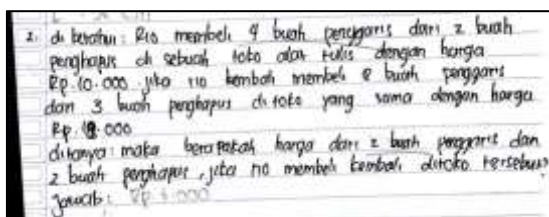 2. di ketahui : Rio membeli 4 buah penggaris dan 2 buah
penghapus di sebuah toko alat tulis dengan harga
Rp. 10.000. jika rio kembali membeli 8 buah penggaris
dan 3 buah penghapus di toko yang sama dengan harga
Rp. 000
ditanya : maka berapakah harga dari 2 buah penggaris dan
2 buah penghapus, jika rio membeli kembali ditoko tersebut
Jawab : Rp 000